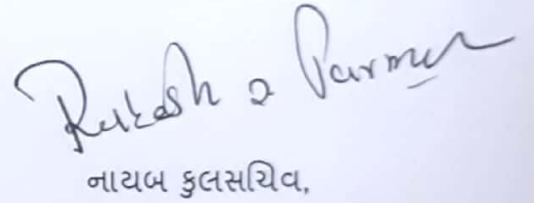 Rakesh Parmar
નાયબ કુલસચિવ,